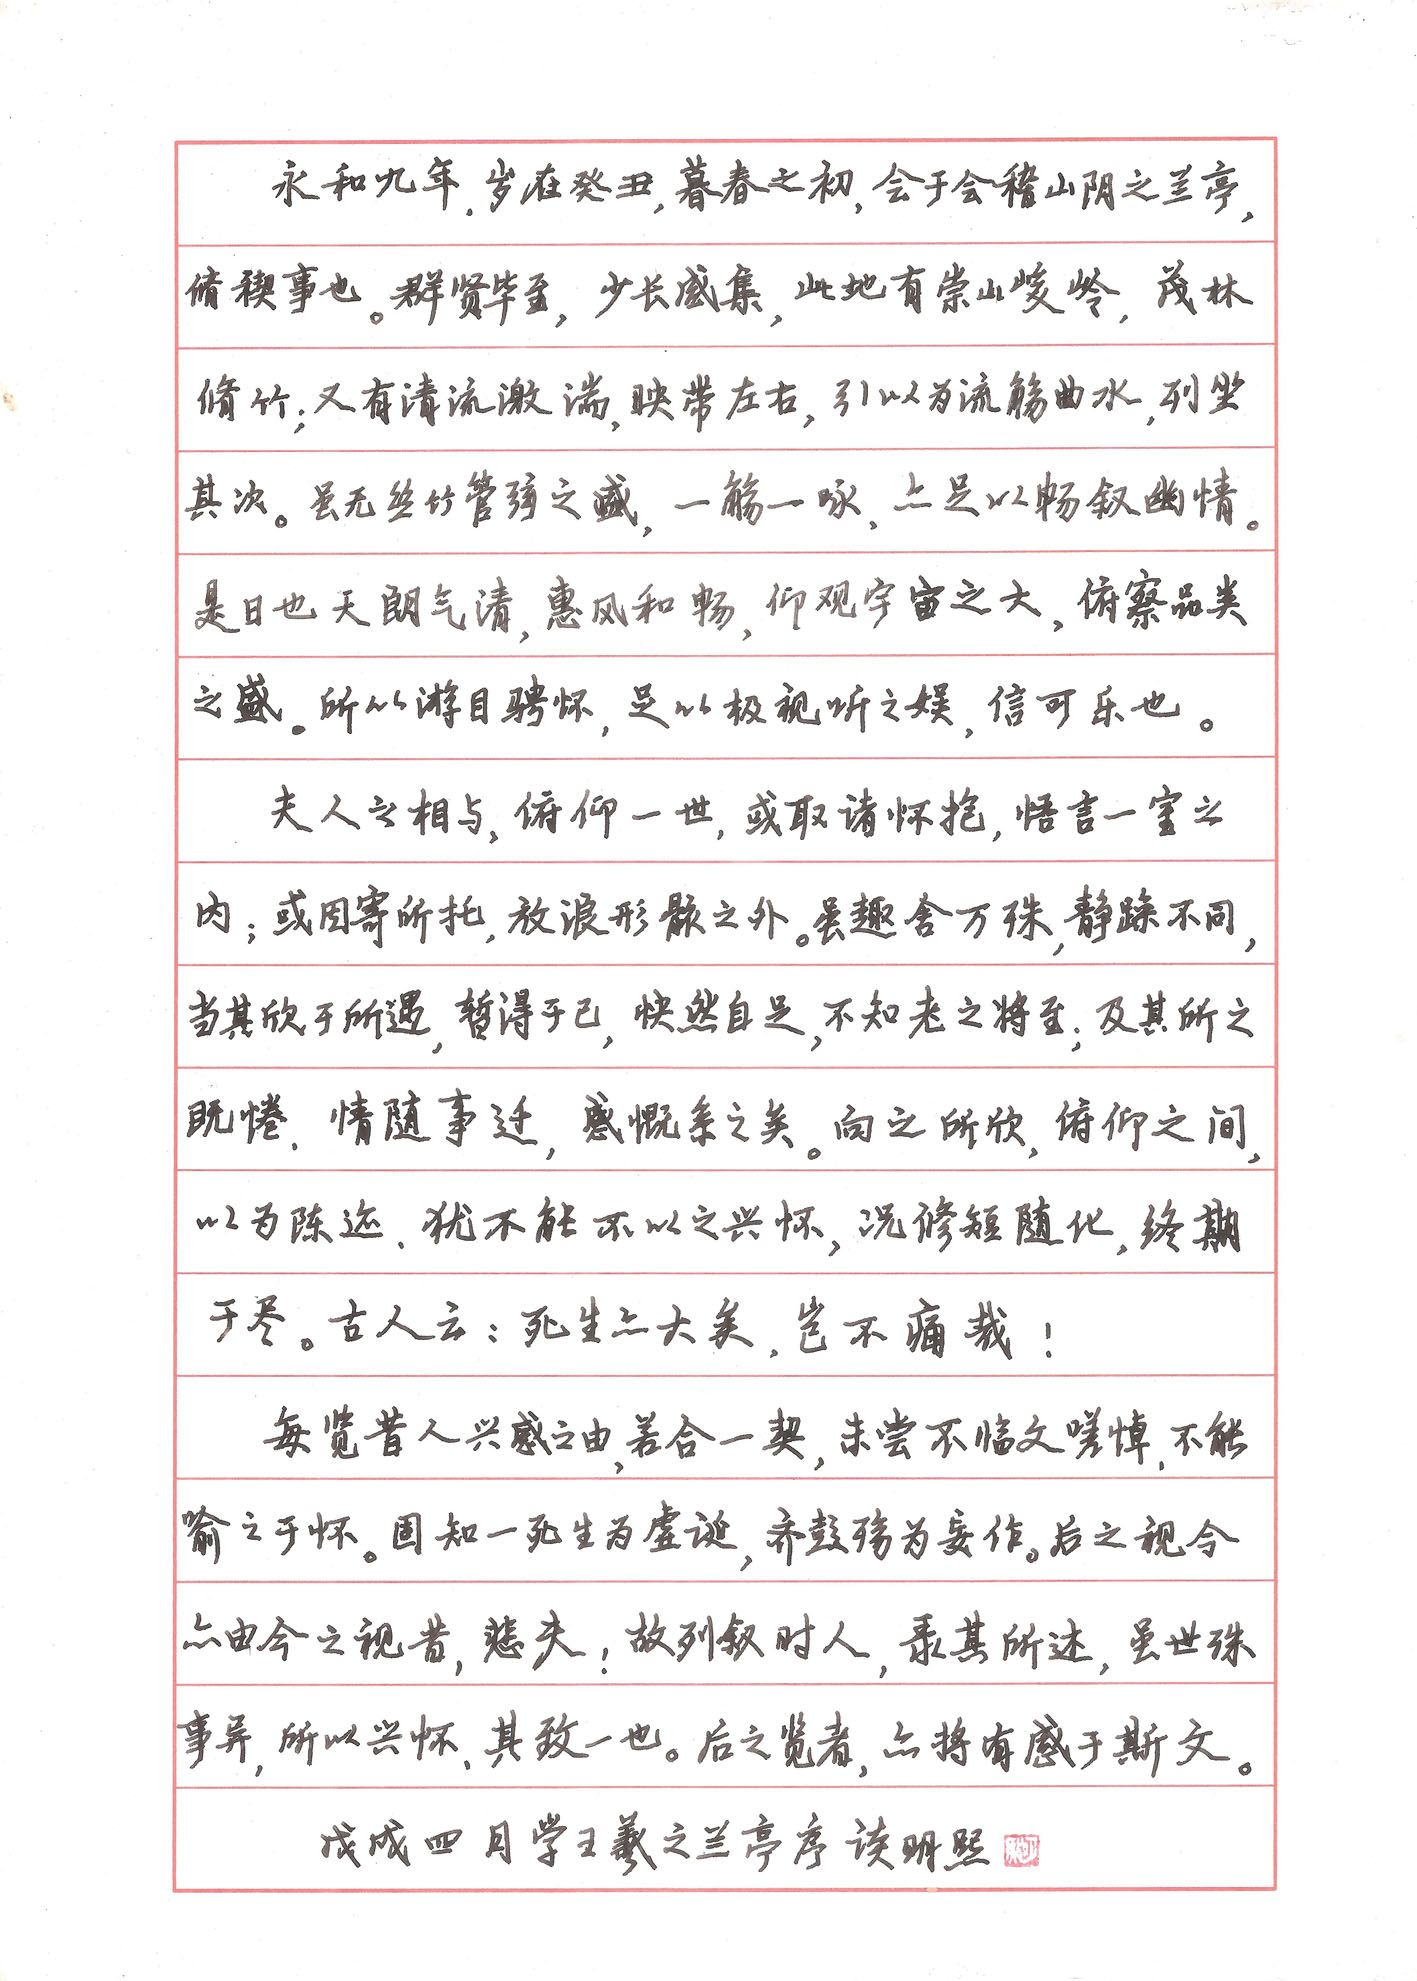 永和九年,岁在癸丑,暮春之初,会于会稽山阴之兰亭,
脩稧事也。群贤毕至,少长咸集,此地有崇山峻岭,茂林
脩竹;又有清流激湍,映带左右,引以为流觞曲水,列坐
其次。虽无丝竹管弦之盛,一觞一咏,亦足以畅叙幽情。
是日也天朗气清,惠风和畅,仰观宇宙之大,俯察品类
之盛。所以游目骋怀,足以极视听之娱,信可乐也。
夫人之相与,俯仰一世,或取诸怀抱,悟言一室之
内;或因寄所托,放浪形骸之外。虽趣舍万殊,静躁不同,
当其欣于所遇,暂得于己,怏然自足,不知老之将至;及其所之
既惓,情随事迁,感慨系之矣。向之所欣,俯仰之间,
以为陈迹,犹不能不以之兴怀,况修短随化,终期
于尽。古人云:死生亦大矣,岂不痛哉!
每览昔人兴感之由,若合一契,未尝不临文嗟悼,不能
喻之于怀。固知一死生为虚诞,齐彭殇为妄作。后之视今
亦由今之视昔,悲夫!故列叙时人,录其所述,虽世殊
事异,所以兴怀,其致一也。后之览者,亦将有感于斯文。
戊戌四月学王羲之兰亭序 谈明熙